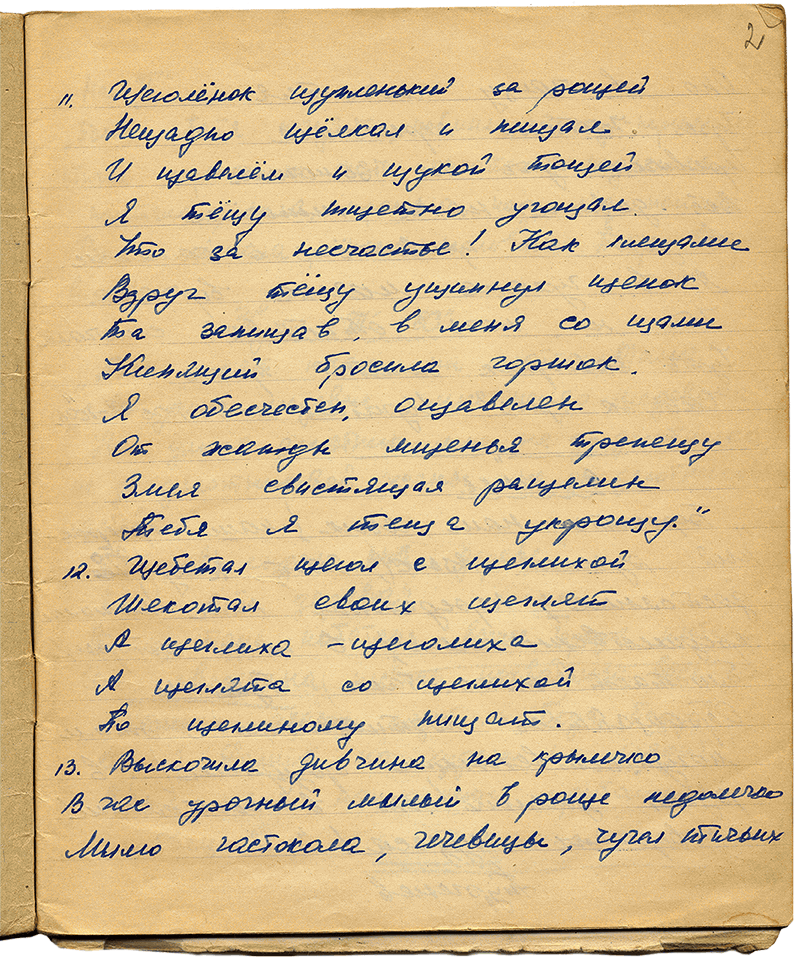 2
11. Щеголёнок щупленький за рощей
Нещадно щёлкал и пищал.
И щавелём и щукой тощей
Я тёщу тщетно угощал.
Что за несчастье! Как клещами
Вдруг тёщу ущипнул щенок
Та запищав, в меня со щами
Кипящий бросила горшок.
Я обесчещен, ощавелен
От жажды мщенья трепещу
Змея свистящая расщелин
Тебя я теща укрощу."
12. Щебетал щегол с щеглихой
Щекотал своих щеглят
А щеглиха - щеголиха
А щеглята со щеглихой
По щеглиному пищат.
13. Выскочила дивчина на крылечко
В час урочный милый в роще недалечко
Мимо частокола, чечевицы, чучел птичьих